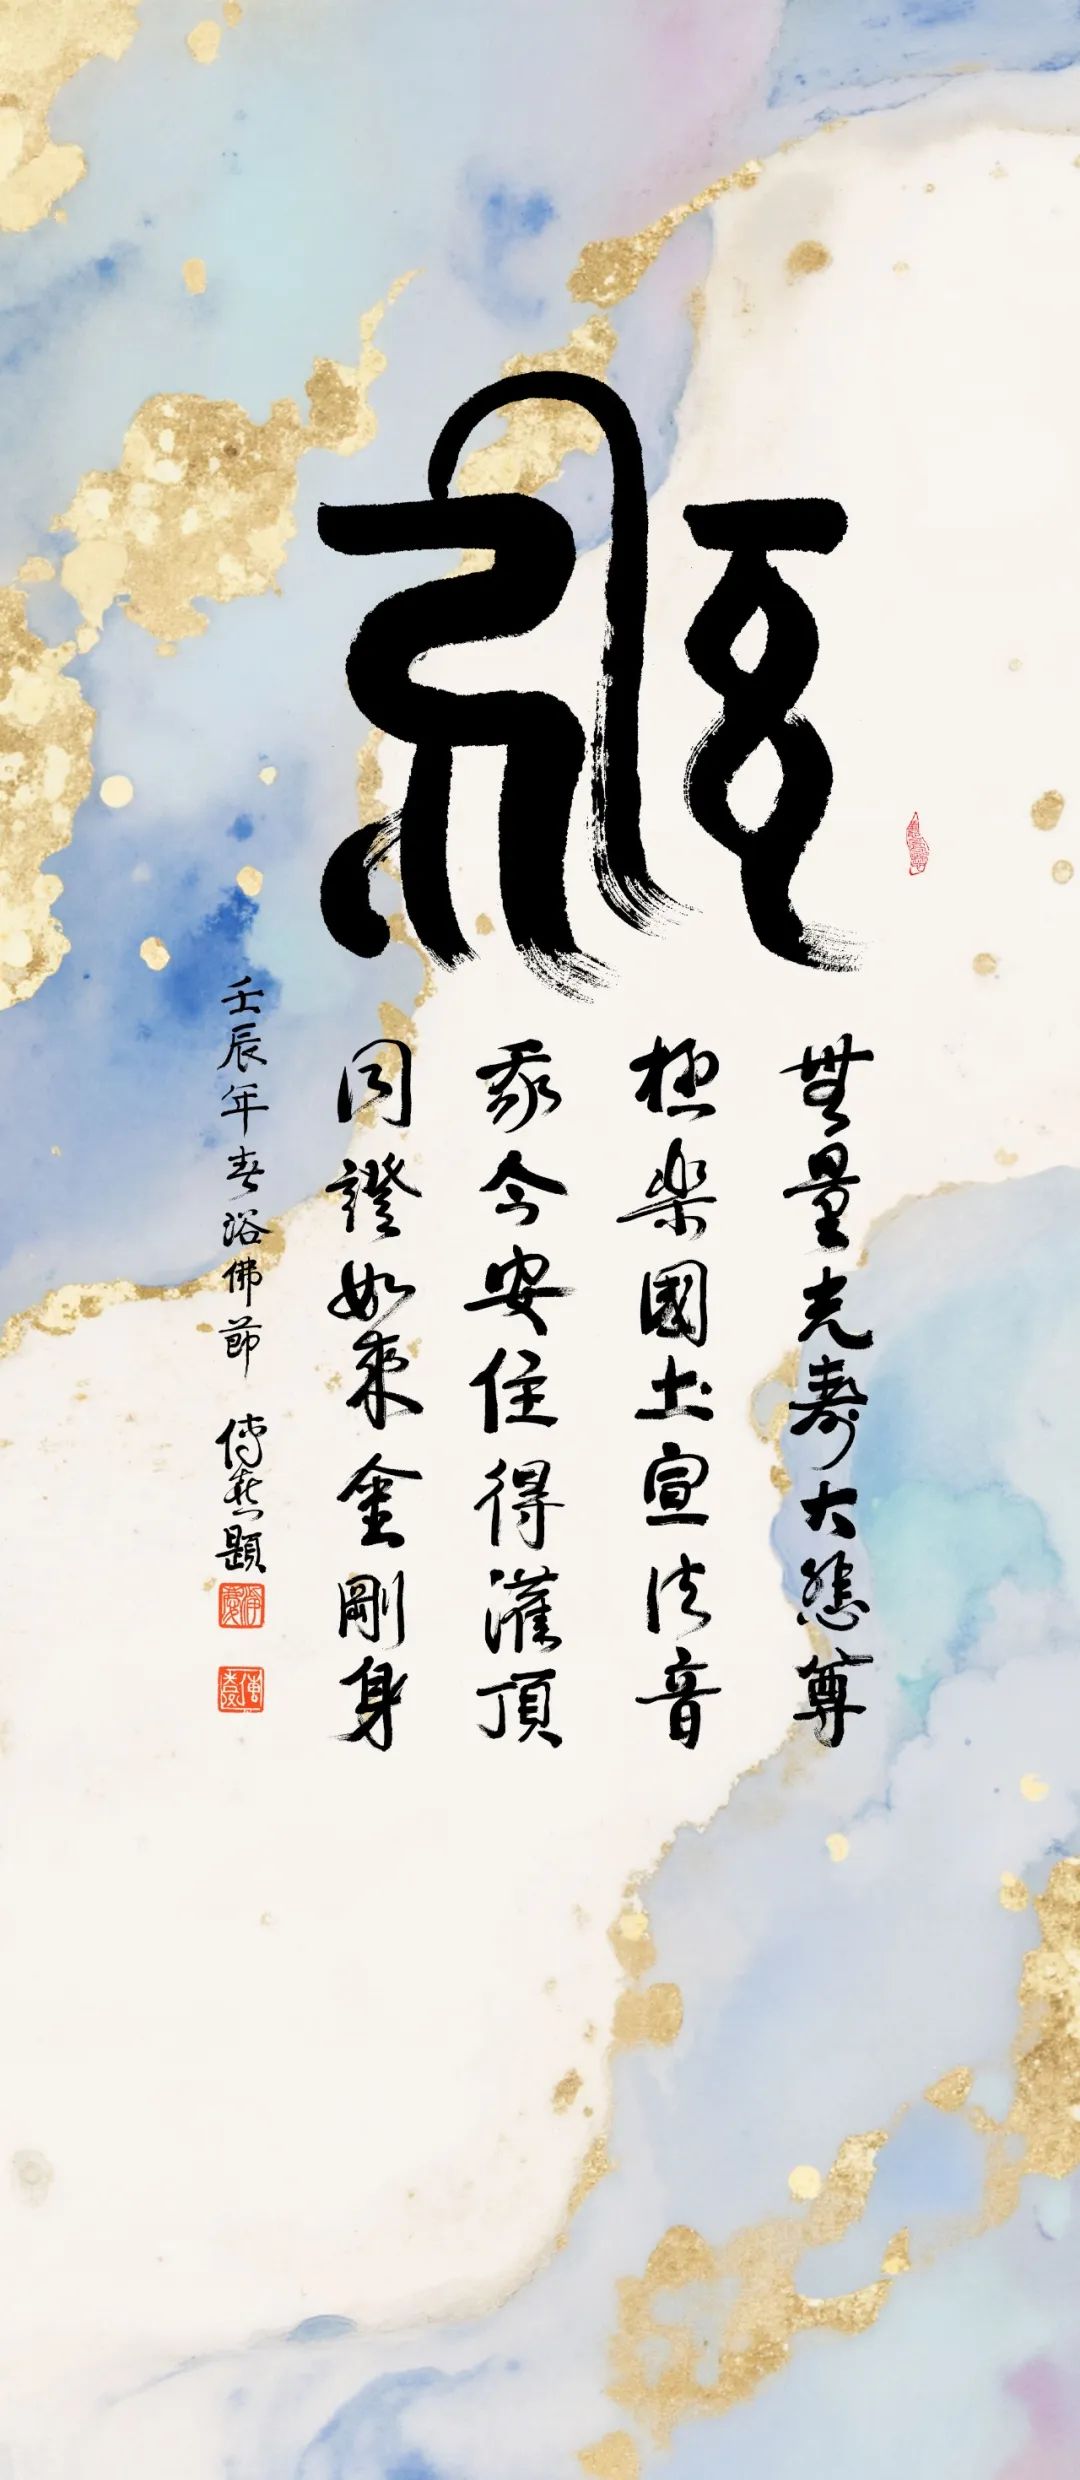 𑖮𑖿𑖨𑖱𑖾
無量光壽大慈尊
極楽國土宣法音
我今安住得灌頂
同證如來金剛身
壬辰年春浴佛節 傅題